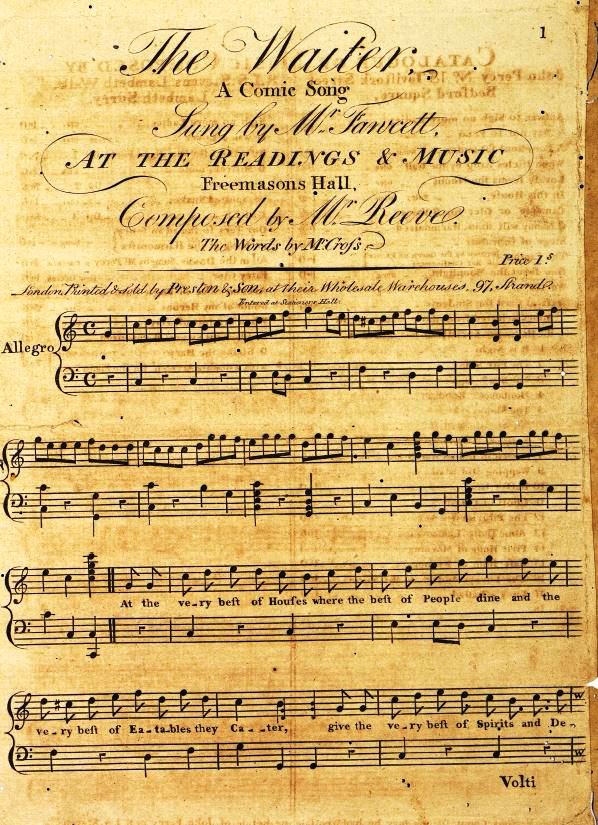 1
The Waiter,
A Comic Song
Sung by Mr. Fawcett,
AT THE READINGS & MUSIC
Freemasons Hall,
Composed by Mr. Reeve.
The Words by Mr. Croſs.
Price 1s
London Printed & Sold by Preston & Son, at their Wholesale Warehouses, 97, Strand.
Entered at Stationers Hall.
Allegro
At the ve-ry beſt of Houſes where the beſt of People dine and the
ve-ry beſt of Ea-ta-bles they Ca-ter, give the ve-ry beſt of Spirits and De-
Volti